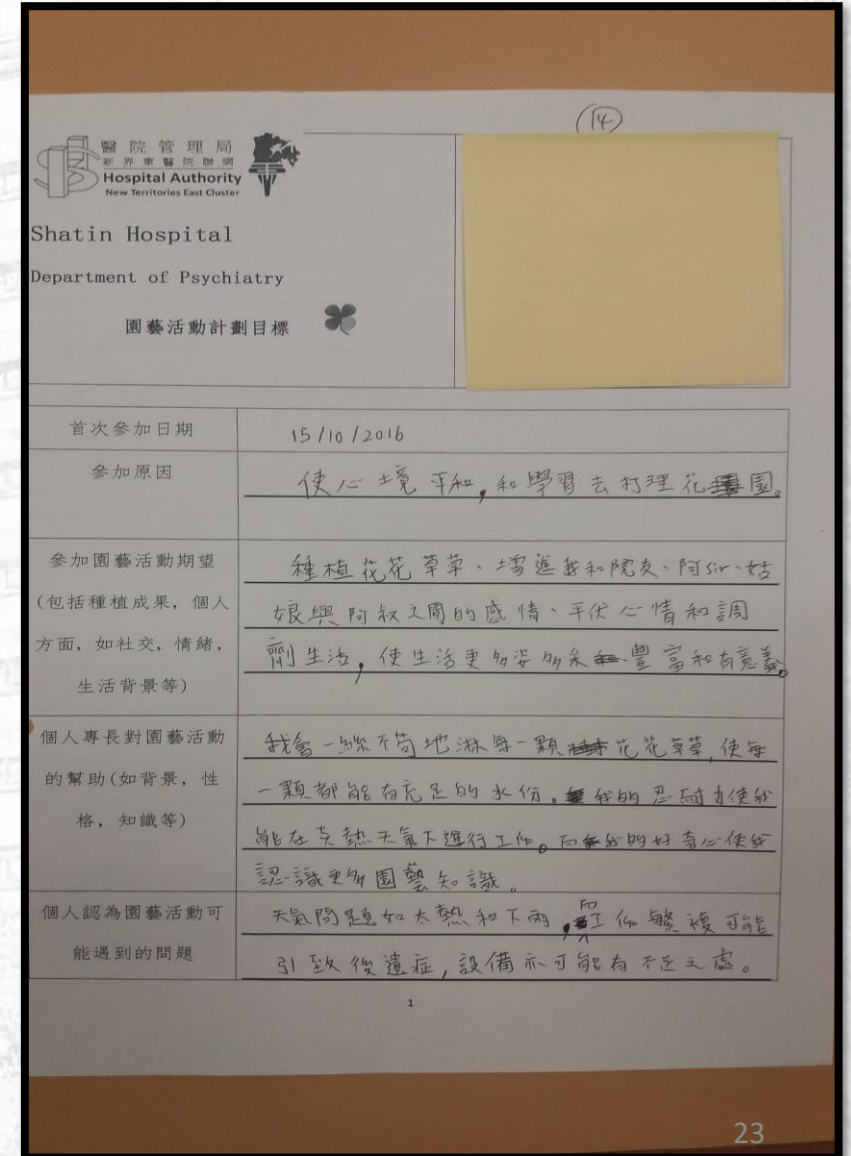 14
醫院管理局
新界東醫院聯網
Hospital Authority
New Territories East Cluster
Shatin Hospital
Department of Psychiatry
園藝活動計劃目標
首次參加日期
15/10/2016
參加原因
使心境平和,和學習去打理花園。
參加園藝活動期望
(包括種植成果,個人
方面,如社交,情緒,
生活背景等)
種植花花草草、增進我和院友、阿sir、姑
娘與阿叔之間的感情、平伏心情和調
劑生活,使生活更多姿多采、豐富和有意義。
個人專長對園藝活動
的幫助(如背景,性
格,知識等)
我會一絲不苟地淋每一顆花花草草,使每
一顆都能有充足的水份。我的忍耐力使我
能在炎熱天氣下進行工作。而我的好奇心使我
認識更多園藝知識。
個人認為園藝活動可
能遇到的問題
天氣問題如太熱和下雨,而工作繁複可能
引致後遺症,設備亦可能有不足之處。
1
23